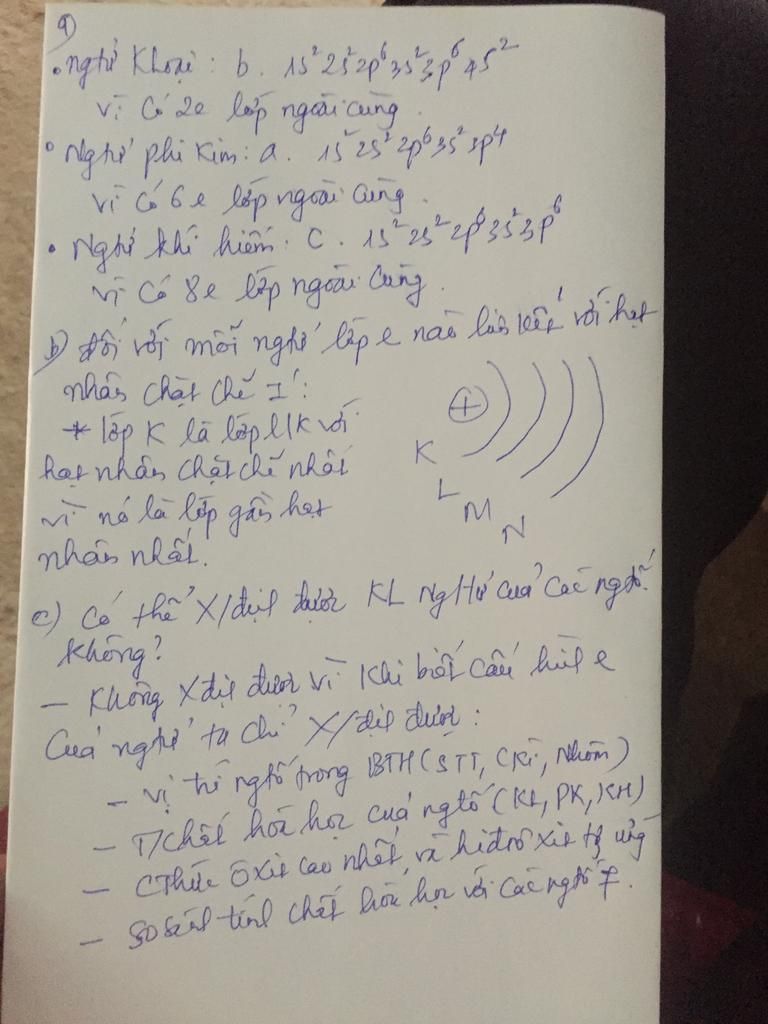 a)
• Ngtử Khoại: b. 1s² 2s² 2p⁶ 3s² 3p⁶ 4s²
vì Có 2e lớp ngoài cùng.
• Ngtử phi kim: a. 1s² 2s² 2p⁶ 3s² 3p⁴
vì Có 6e lớp ngoài cùng.
• Ngtử khí hiếm: C. 1s² 2s² 2p⁶ 3s² 3p⁶
vì Có 8e lớp ngoài cùng.
b) Đối với mỗi ngtử lớp e nào liên kết với hạt
nhân chặt chẽ I':
* lớp K là lớp l/k với
hạt nhân chặt chẽ nhất
vì nó là lớp gần hạt
nhân nhất.
+
K
L
M
N
c) Có thể X/định được KL Ngtử của các ngtố
không?
- Không Xđịnh được vì khi biết cấu hình e
của ngtử ta chỉ X/định được:
- Vị trí ngtố trong BTH (STT, CKì, Nhóm)
- T/chất hoá học của ngtố (KL, PK, KH)
- CThức Oxit cao nhất, và hiđrôxit tg ứng
- So sánh tính chất hoá học với các ngtố ≠.